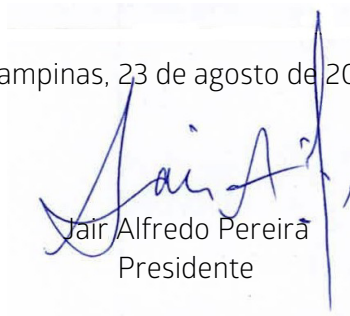 ampinas, 23 de agosto de 20
Jair Alfredo Pereira
Presidente